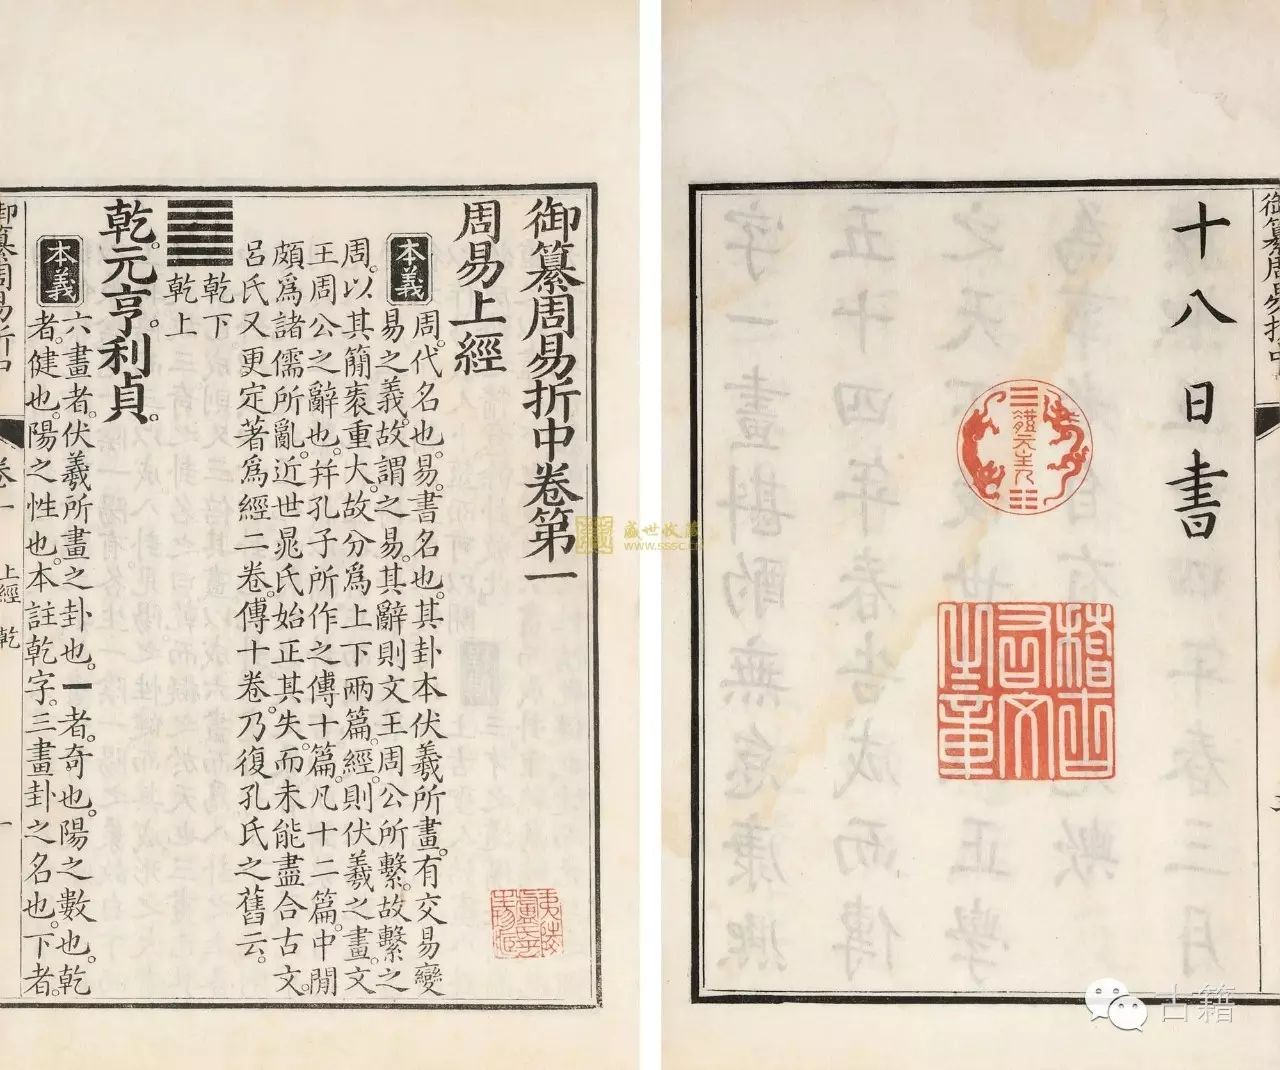 御纂周易折中
十八日書
體元主人
稽古右文之章
御纂周易折中卷第一
周易上經
本義
周。代名也。易。書名也。其卦本伏羲所畫。有交易變
易之義。故謂之易。其辭則文王周公所繫。故繫之
周。以其簡袠重大。故分爲上下兩篇。經則伏羲之畫。文
王周公之辭也。并孔子所作之傳十篇。凡十二篇。中閒
頗爲諸儒所亂。近世晁氏始正其失。而未能盡合古文。
呂氏又更定著爲經二卷。傳十卷。乃復孔氏之舊云。
乾下
乾上
乾。元亨。利貞。
本義
六畫者。伏羲所畫之卦也。一者。奇也。陽之數也。乾
者。健也。陽之性也。本註乾字。三畫卦之名也。下者。
御纂周易折中
卷一
上經 乾
一
盛世收藏
www.sssc.cn
古籍